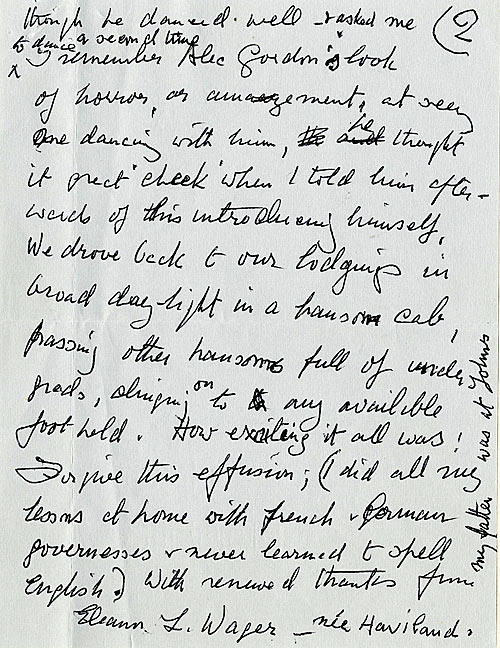 though he danced well & asked me (2
to dance a second time
I remember Alec Gordon's look
of horror, or amazement, at seeing
me dancing with him, he thought
it great 'cheek' when I told him after-
wards of this introducing himself.
We drove back to our lodgings in
broad day-light in a hansom cab,
passing other hansoms full of under
grads, clinging on to any available
foot hold. How exciting it all was!
Forgive this effusion; (I did all my
lessons at home with french & German
governesses & never learned to spell
English.) With renewed thanks from
Eleanor L. Wager – née Haviland.
my father was at Johns